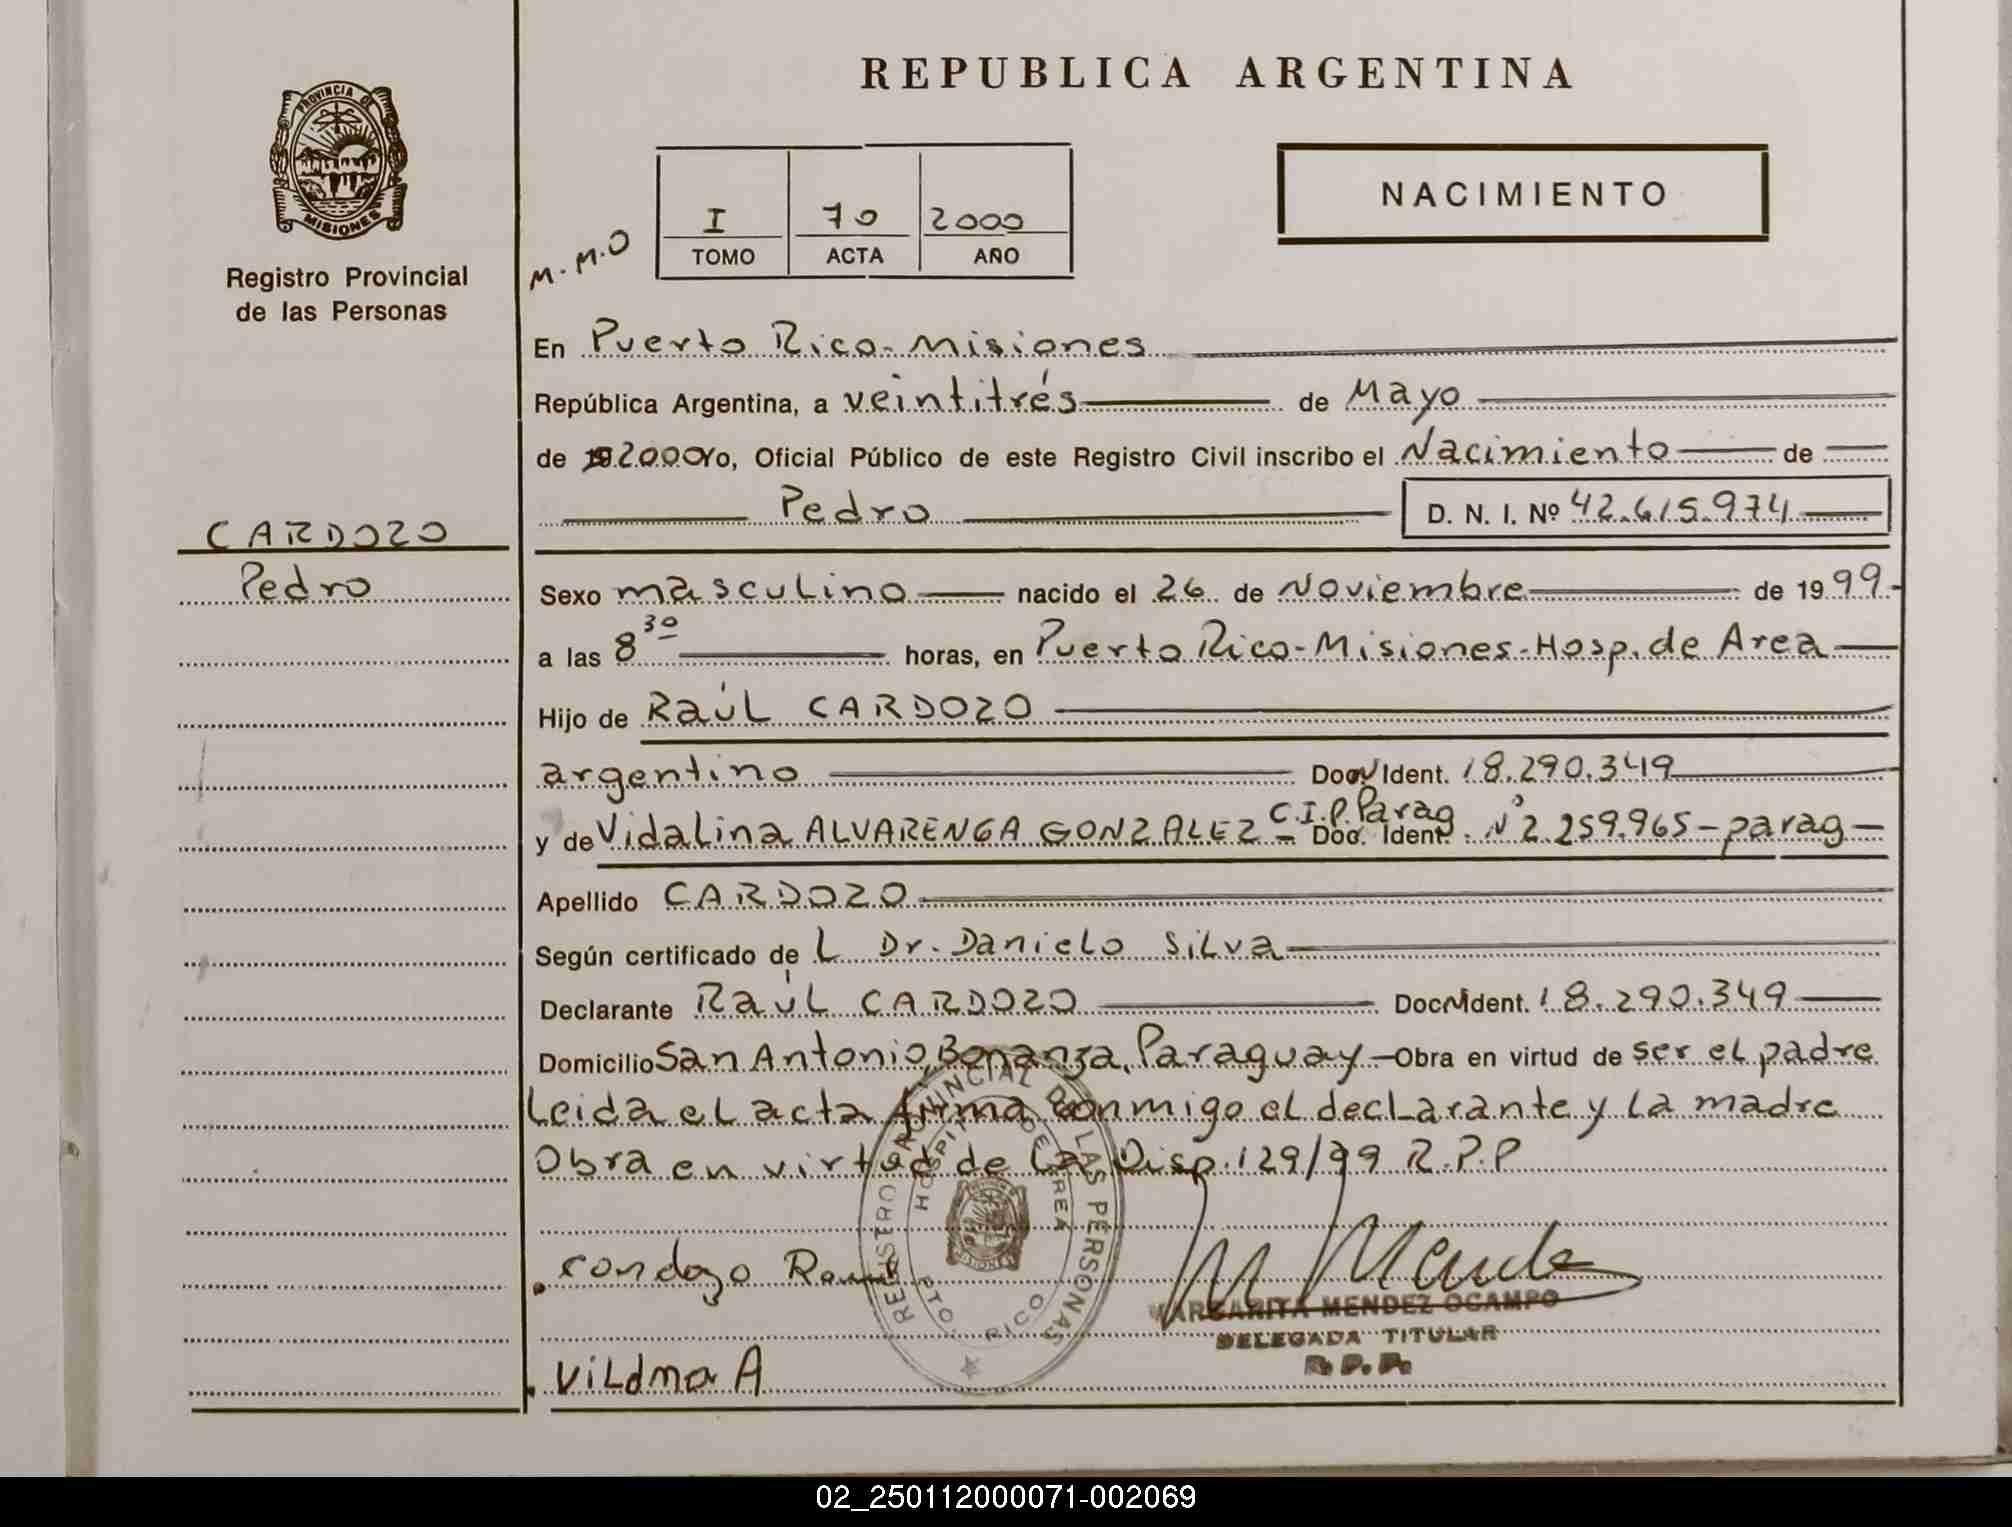 REPUBLICA ARGENTINA
PROVINCIA DE
MISIONES
Registro Provincial
de las Personas
M.M.O
I 70 2000
TOMO ACTA AÑO
NACIMIENTO
En Puerto Rico-Misiones
República Argentina, a veintitrés de Mayo
de 2000 Yo, Oficial Público de este Registro Civil inscribo el Nacimiento de
Pedro D. N. I. Nº 42.615.974
CARDOZO
Pedro
Sexo masculino nacido el 26 de Noviembre de 1999-
a las 8 30 horas, en Puerto Rico-Misiones-Hosp. de Area
Hijo de Raúl CARDOZO
argentino Doc. Ident. 18.290.349
C.I.P. Parag
y de Vidalina ALVARENGA GONZALEZ - Doc. Ident. Nº 2.259.965-parag-
Apellido CARDOZO
Según certificado de L Dr. Danielo Silva
Declarante Raúl CARDOZO Doc. Ident. 18.290.349
Domicilio San Antonio, Bonanza, Paraguay - Obra en virtud de ser el padre
Leida el acta firma conmigo el declarante y la madre
Obra en virtud de la Disp. 129/99 R.P.P
REGISTRO PROVINCIAL DE LAS PERSONAS
HOSPITAL DE AREA
PTO RICO
MARGARITA MENDEZ OCAMPO
DELEGADA TITULAR
R.P.P.
Vildma A
02_250112000071-002069